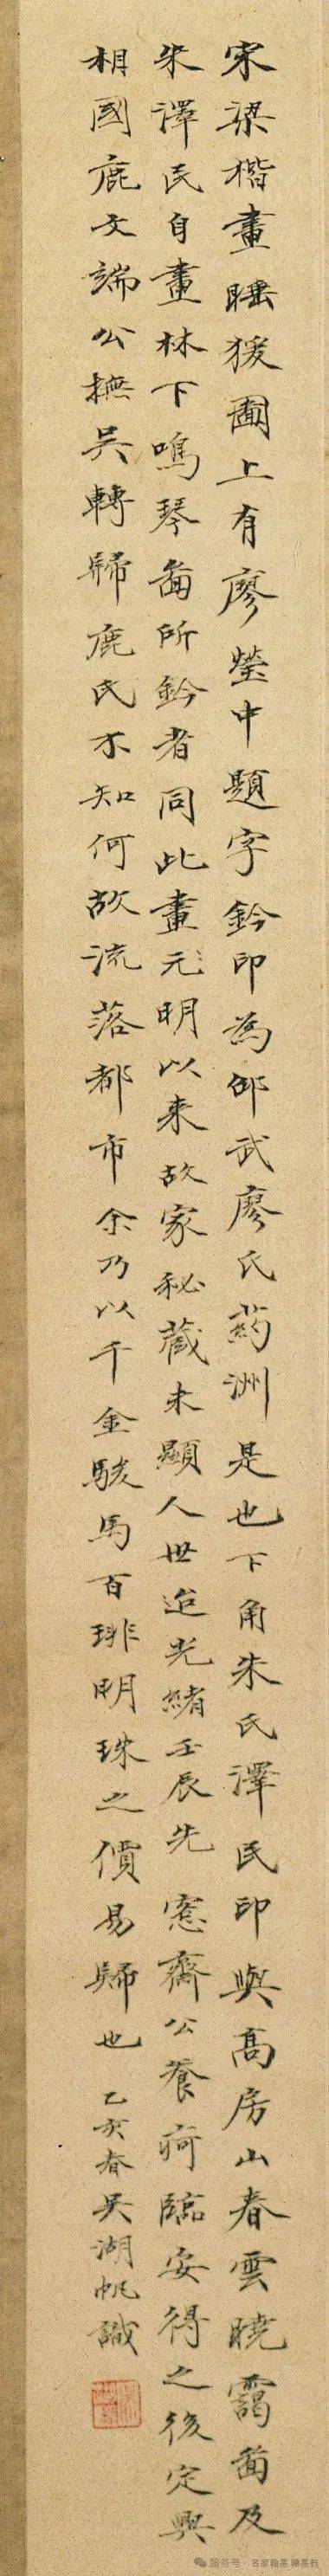 宋梁楷畫睡猨圖上有廖瑩中題字鈐印為邵武廖氏药洲是也下角朱氏澤民印與高房山春雲曉靄啚及
朱澤民自畫林下鳴琴啚所鈐者同此畫元明以来故家秘蔵未顯人世迨光緒壬辰先窓齋公養疴臨安得之後定興
相國鹿文端公撫吳轉歸鹿氏不知何故流落都市余乃以千金駿馬百琲明珠之價易歸也 乙亥春吳湖帆識
服务号 · 名家翰墨